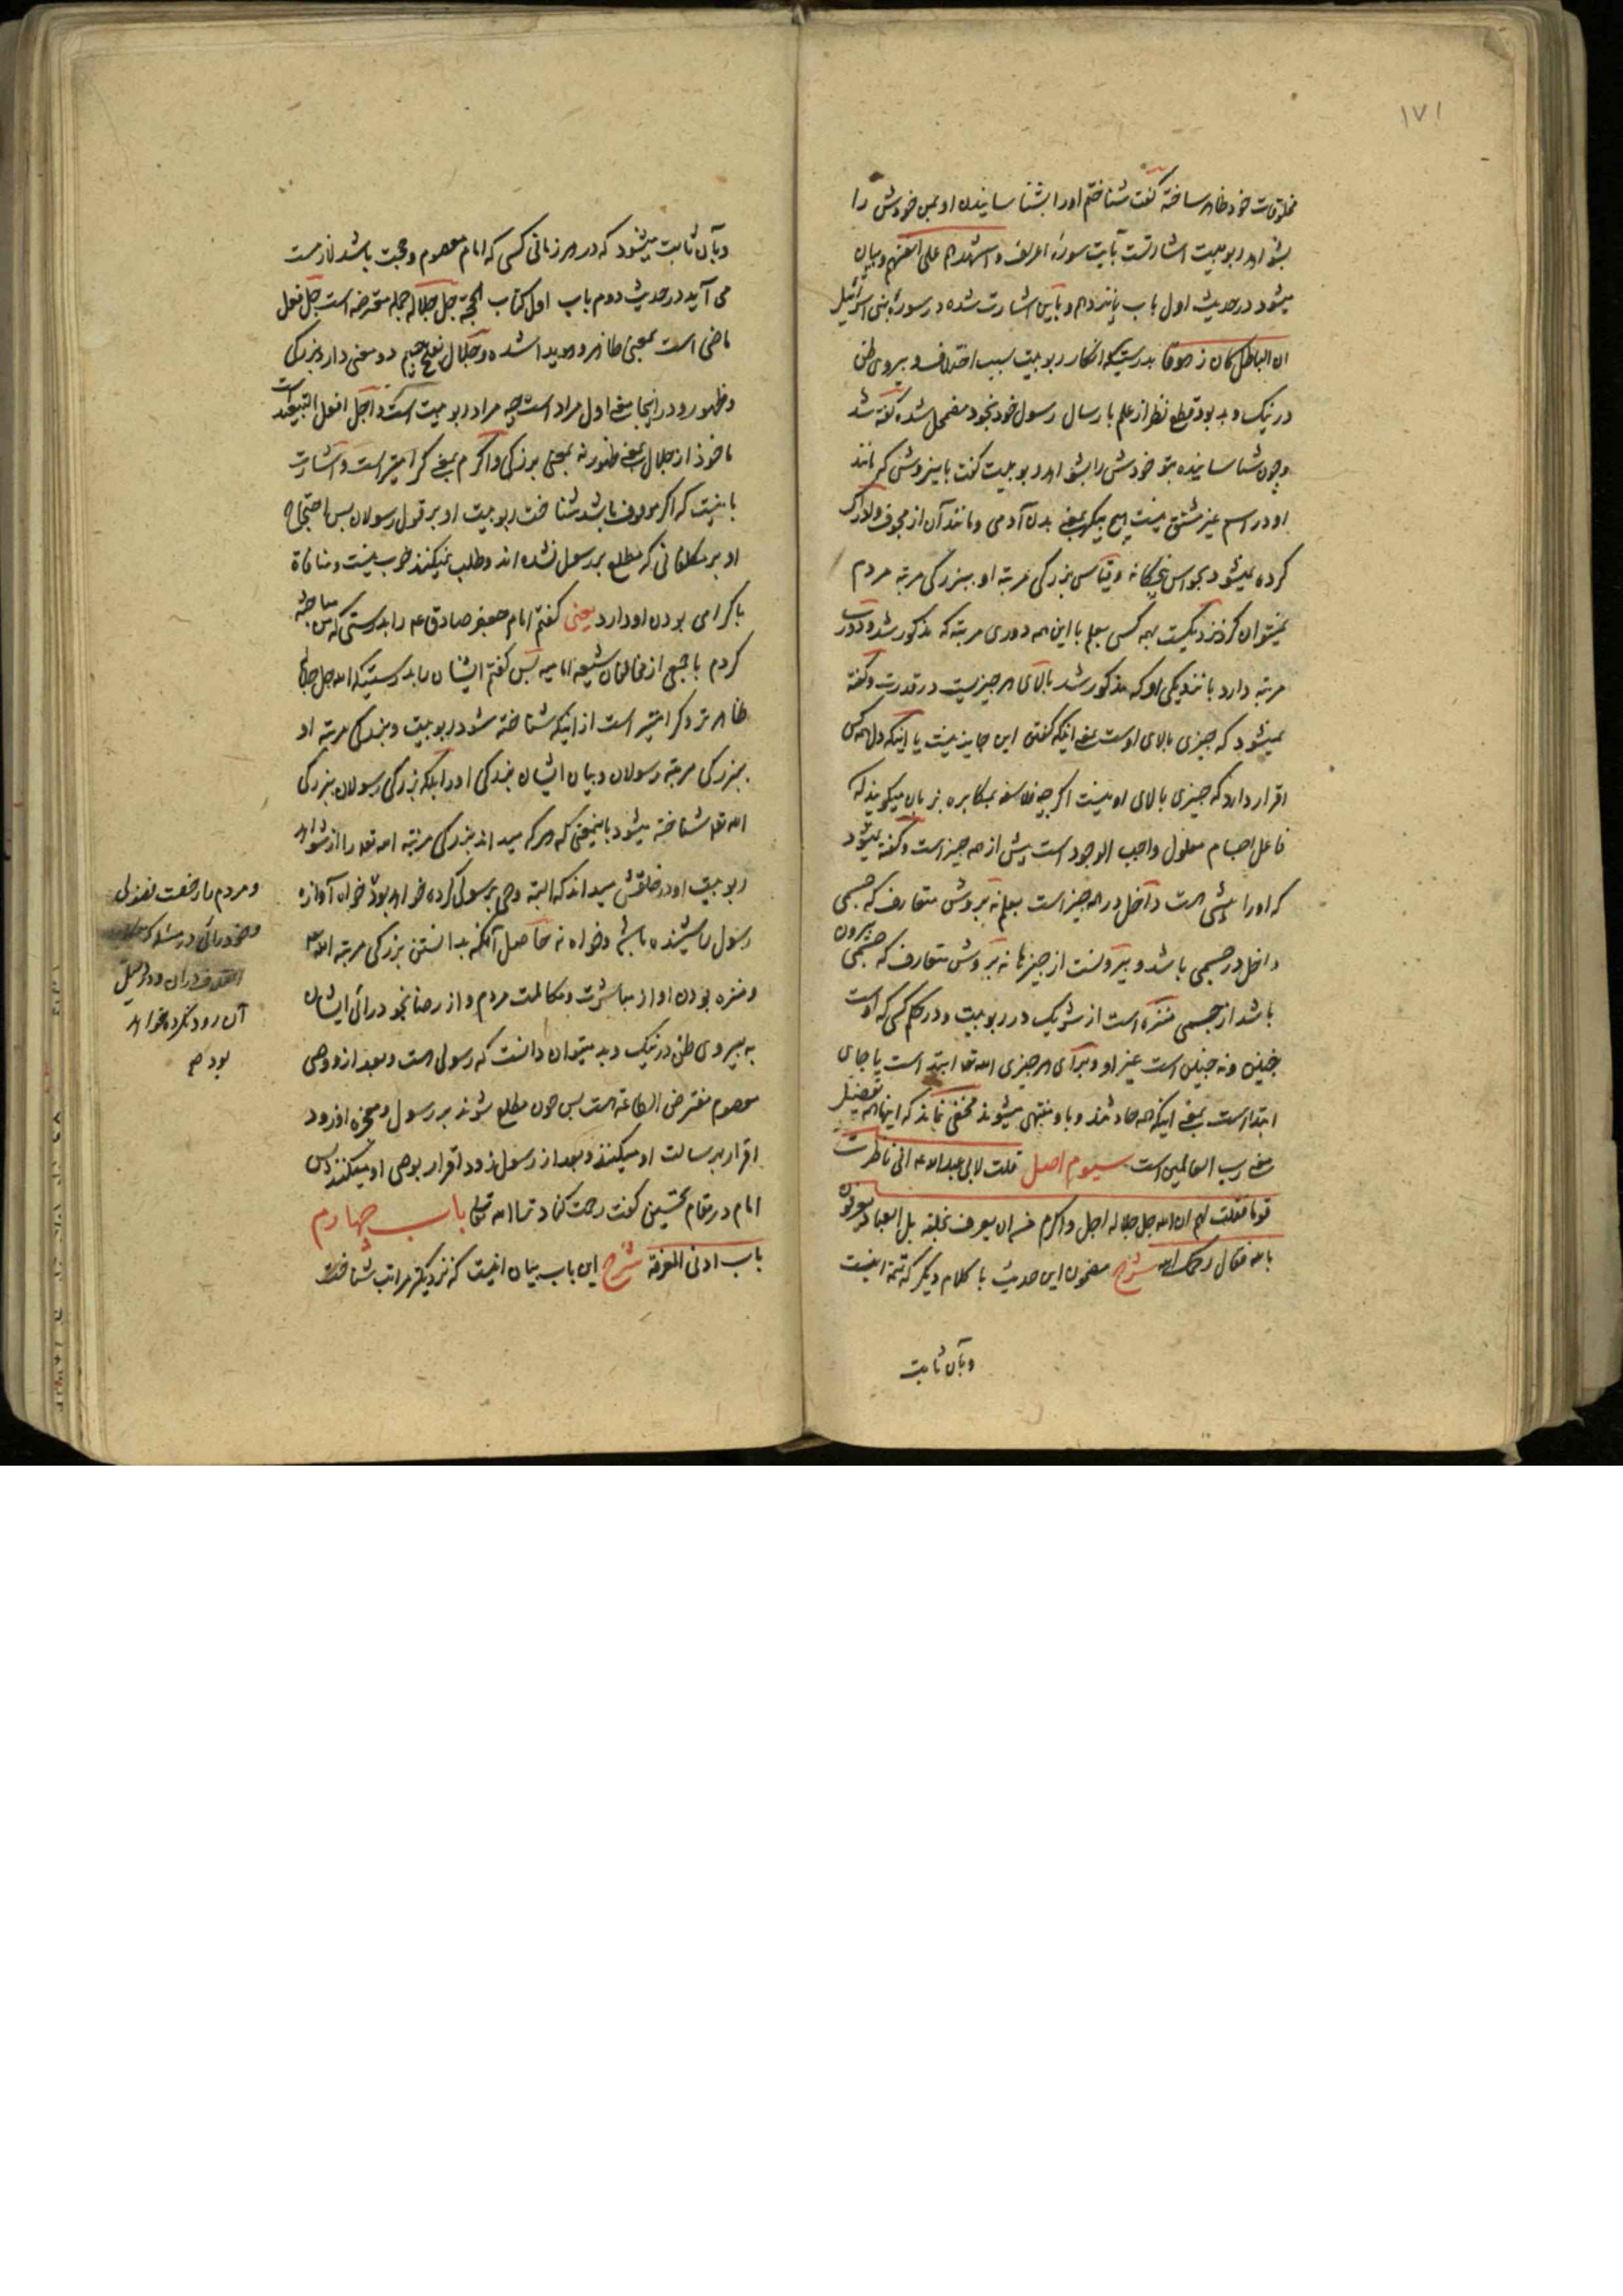 ١٧١
مخلوقات خود ظاهر ساخته گفت شناختم او را بشناسانیدن او بمن خودش را
بشواهد ربوبیت اشارتست بآیت سورهٔ اعراف و اشهدهم علی انفسهم و بیان
میشود در حدیث اول باب پانزدهم و باین اشارت شده در سورهٔ بنی اسرائیل
ان الباطل کان زهوقا بدرستیکه انکار ربوبیت سبب اختلاف و پیروی ظن
در نیک و بد بود قطع نظر از علم بارسال رسول خود بخود مضمحل شده گفته شد
و چون شناسانیده بتو خودش را بشواهد ربوبیت گفت باینروش که مانند
او در اسم غیر مشتق نیست هیچ پیکر یعنی بدن آدمی و مانند آن از مجوف و ادراک
کرده نمیشود بحواس پنجگانه و قیاس بزرگی مرتبه او ببزرگی مرتبه مردم
نمیتوان کرد نزدیکست بهمه کسی بعلم با این همه دوری مرتبه که مذکور شد و دورست
مرتبه دارد با نزدیکی او که مذکور شد بالای هر چیزیست در قدرت و گفته
نمیشود که چیزی بالای اوست یعنی اینکه گفتن این جایز نیست یا اینکه دل همه کس
اقرار دارد که چیزی بالای او نیست اگر چه فلاسفه بمکابره بزبان میگویند که
فاعل اجسام معلول واجب الوجود است پیش از همه چیز است و گفته نمیشود
که او را پیشی هست داخل در همه چیز است بعلم نه بروش متعارف که جسمی
داخل در جسمی باشد و بیرونست از چیزها نه بروش متعارف که جسمی بیرون
باشد از جسمی منزه است از شریک در ربوبیت و در حکم کسی که اوست
چنین و نه چنین است غیر او و برای هر چیزی الله تعالی ابتدا است یا جای
ابتدا است یعنی اینکه همه حادثند و باو منتهی میشوند مخفی نماند که اینها همه تفصیل
معنی رب العالمین است سیوم اصل قلت لابی عبدالله ع انی ناظرت
قوما فقلت لهم ان الله جل جلاله اجل و اکرم من ان یعرف بخلقه بل العباد یعرفون
بالله فقال رحمک الله شرح مضمون این حدیث با کلام دیگر که تتمه اینست
و بآن ثابت
و بآن ثابت میشود که در هر زمانی کسی که امام معصوم و حجت باشد لازمست
می آید در حدیث دوم باب اول کتاب الحجة جل جلاله جمله معترضه است جل فعل
ماضی است بمعنی ظاهر و هویدا شده و جلال بفتح جیم دو معنی دارد بزرگی
و ظهور و در اینجا معنی اول مراد است چه مراد ربوبیت است و اجل افعل التفضیل است
ماخوذ از جلال بمعنی ظهور نه بمعنی بزرگی و اکرم بمعنی گرامیتر است و اشارت
باینست که اگر موقوف باشد شناخت ربوبیت او بر قول رسولان پس احتجاج
او بر مکلفانی که مطلع بر رسول نشده اند و طلب نمیکنند خوب نیست و منافات
با گرامی بودن او دارد یعنی گفتم امام جعفر صادق ع را بدرستی که من مباحثه
کردم با جمعی از مخالفان شیعه امامیه پس گفتم ایشان را بدرستیکه الله جل جلاله
ظاهرتر و گرامیتر است از اینکه شناخته شود ربوبیت و بزرگی مرتبه او
ببزرگی مرتبه رسولان و بیان ایشان بزرگی او را بلکه بزرگی رسولان ببزرگی
الله تعالی شناخته میشود باینمعنی که هر که میداند بزرگی مرتبه الله تعالی را از شواهد
ربوبیت او در خلقش میداند که البته وحی برسول کرده خواهد بود خواه آوازه
رسول را شنیده باشد و خواه نه حاصل آنکه بدانستن بزرگی مرتبه الله تعالی
و منزه بودن او از مباشرت و مکالمت مردم و از رضا بخودرائی ایشان
به پیروی ظن در نیک و بد میتوان دانست که رسولی هست و بعد از او وصی
معصوم مفترض الطاعه هست پس چون مطلع شوند بر رسول و معجزه او زود
اقرار برسالت او میکنند و بعد از رسول زود اقرار بوصی او میکنند پس
امام در مقام تحسین گفت رحمت کناد ترا الله تعالی باب چهارم
باب ادنی المعرفة شرح این باب بیان اینست که نزدیکتر مراتب شناخت
و مردم را رخصت
و خودرائی در
اختلاف در آن و دلیل
آن رود نکرده خواهد
بود صح